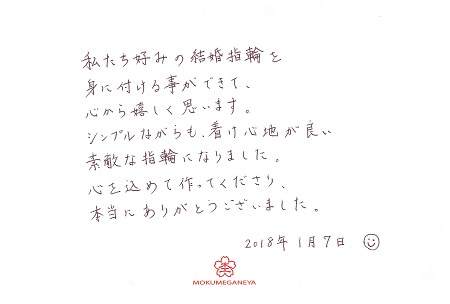 私たち好みの結婚指輪を
身に付ける事ができて、
心から嬉しく思います。
シンプルながらも、着け心地が良い
素敵な指輪になりました。
心を込めて作ってくださり、
本当にありがとうございました。
2018年1月7日
MOKUMEGANEYA